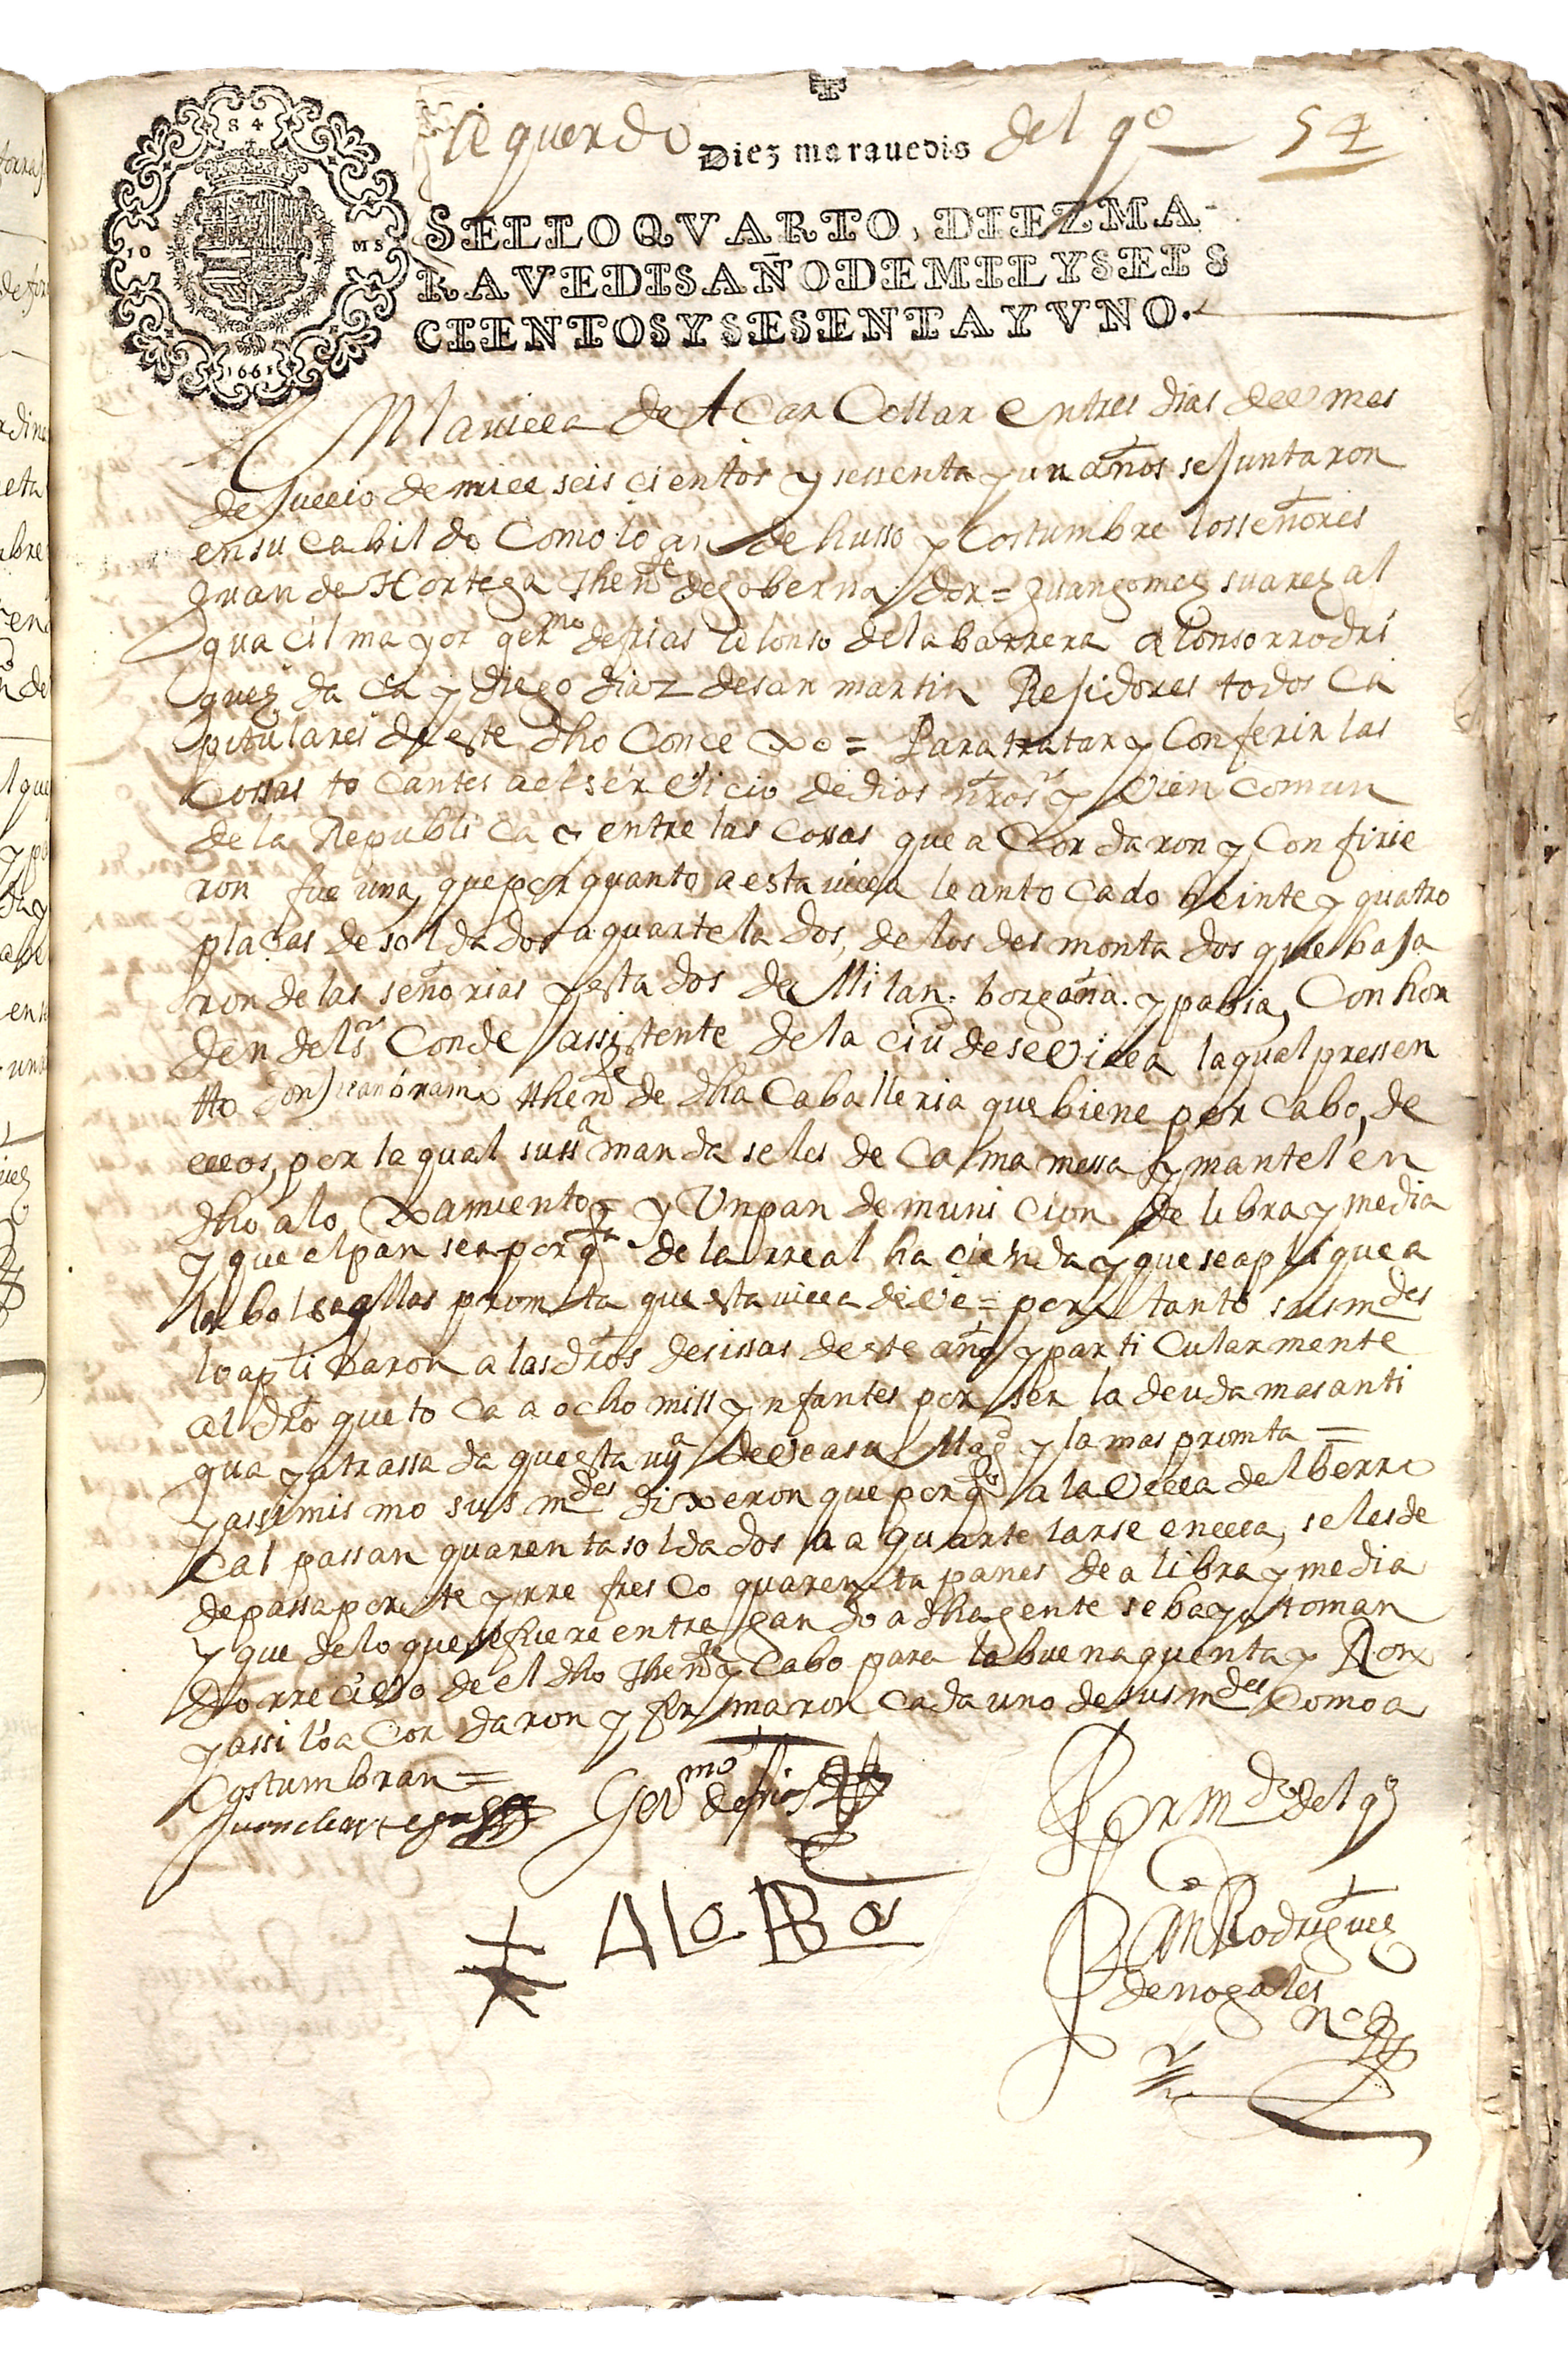 Acquerdo del qº 54
Diez marauedis
84
10 MS
1661
SELLO QVARTO, DIEZ MA-
RAVEDIS AÑO DE MIL Y SEIS
CIENTOS Y SESENTA Y VNO.
En la uilla de Alcar Collar en tres dias del mes
de Jullio de mill seis cientos y sessenta y un años se Juntaron
en su cabildo Como lo an de husso y Costumbre los señores
Juan de Hortega thente de gobernador = Juan gomez suarez al
guacil mayor germo de frias alonso de la barrera alonso rrodri
guez da ca y diego diaz de san martin Rejidores todos Ca
pitulares de este dho Concexo = Para tratar y Conferir las
Cossas to Cantes a el serbicio de dios nro sr y bien Comun
de la Republica y entre las cossas que a Cordaron y Confirie
ron fue una, que por quanto a esta uilla le an tocado beinte y quatro
plaças de soldados aquartelados, de los desmontados que baja
ron de las señorias y estados de Milan. borgoña. y pabia, Con hor
den del sr Conde assistente de la ciud de sevilla la qual pressen
tto Don Juan thente de dha Caballeria que biene por cabo, de
ellos, por la qual su ssa manda se les de Cama messa y mantel en
dho aloxamiento y Un pan de municion de libra y media
y que el pan sea por qta de la rreal hacienda y que se aplique a
la bolsa mas promta que esta uilla deve = por tanto sus mdes
lo aplicaron a las dros de sissas de este año y particularmente
al dro que to ca a ocho mill ynfantes por ser la deuda mas anti
gua y atrassada que esta uya deve a su Magd y la mas promta =
y assimismo sus mdes dixeron que por qto a la Villa del berro
cal passan quarenta soldados a aquartelarse en ella, se les de
de passaporte y rrefresco quarenta panes de a libra y media
y que de lo que se fuere entregando a dha gente se baya toman
do rrecibo de el dho thente y Cabo para la buena quenta y Ron
y assi lo a Cordaron y firmaron cada uno de sus mdes Como a
Costumbran =
Juan de ortega Germo de frias Por mdo del qº
Alo Ba
Rodriguez
de nogales